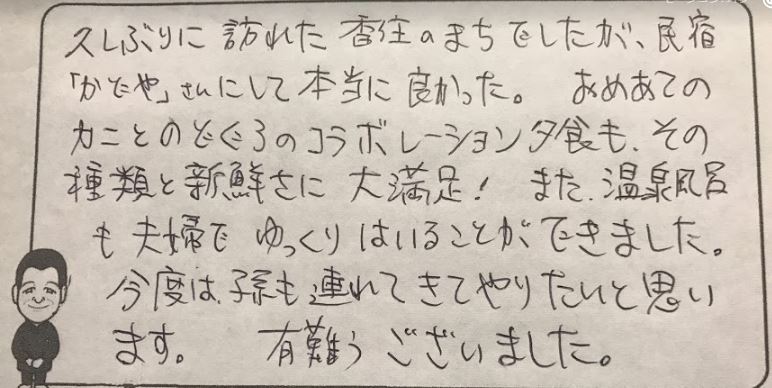 久しぶりに訪れた香住のまちでしたが、民宿
「かどや」さんにして本当に良かった。 おめあての
カニとのどぐろのコラボレーション夕食も、その
種類と新鮮さに 大満足! また、温泉風呂
も夫婦で ゆっくりはいることができました。
今度は、孫も連れてきてやりたいと思い
ます。 有難うございました。